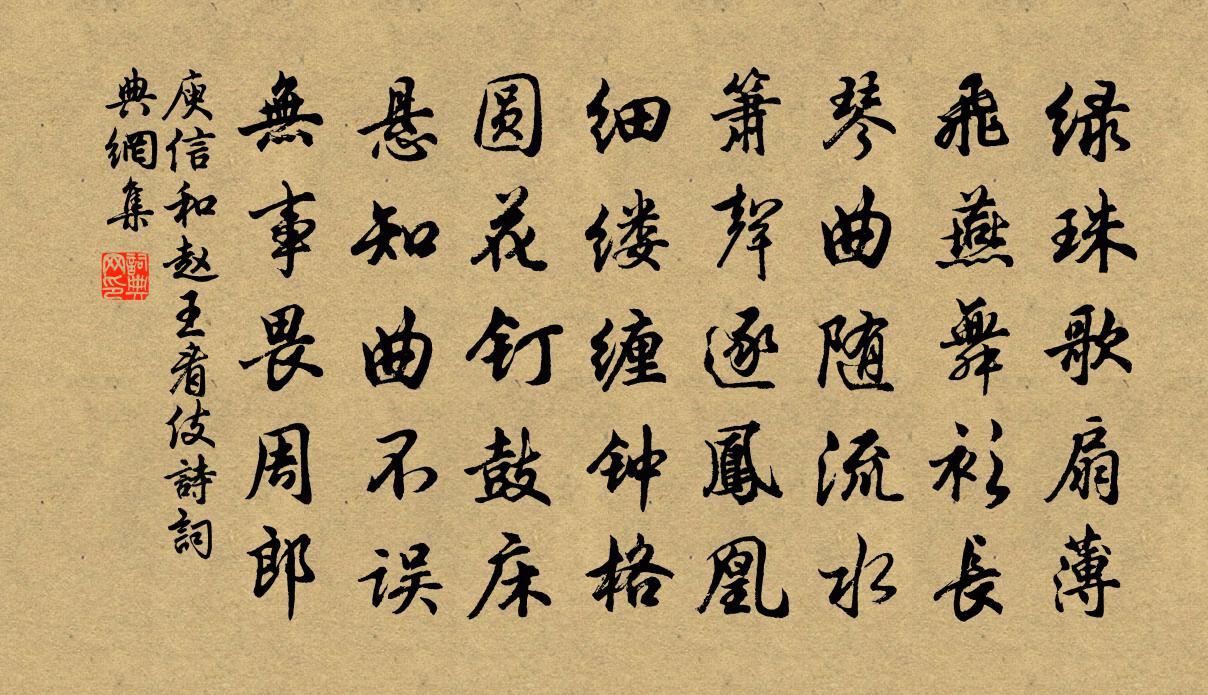 绿珠歌扇薄
飛燕舞衫長
琴曲随流水
箫聲逐鳳凰
细缕缠钟格
圆花钉鼓床
悬知曲不误
無事畏周郎
庾信和赵王看伎詩詞
典網集
詞典网印